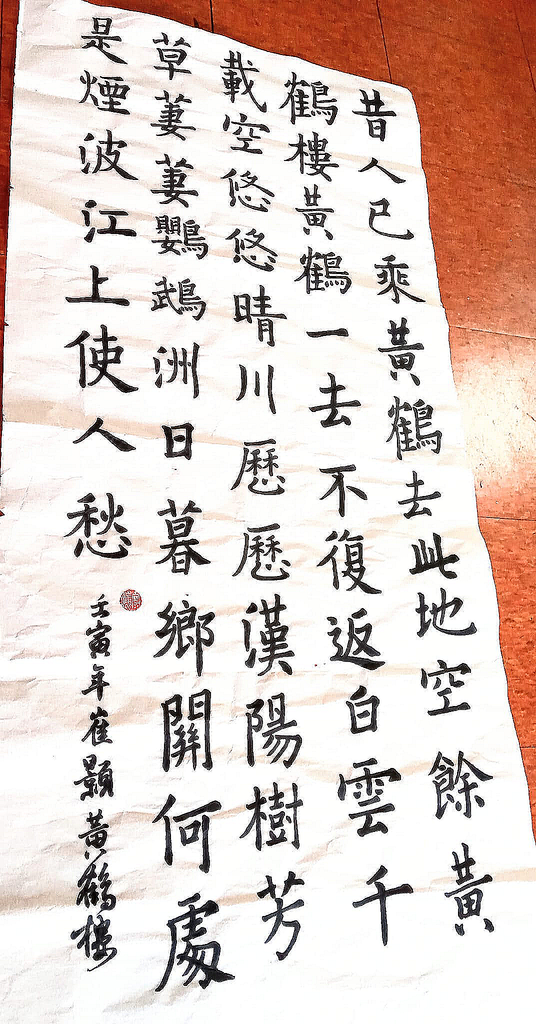 昔人已乘黃鶴去此地空餘黃
鶴樓黃鶴一去不復返白雲千
載空悠悠晴川歷歷漢陽樹芳
草萋萋鸚鵡洲日暮鄉關何處
是煙波江上使人愁
壬寅年崔顥黃鶴樓